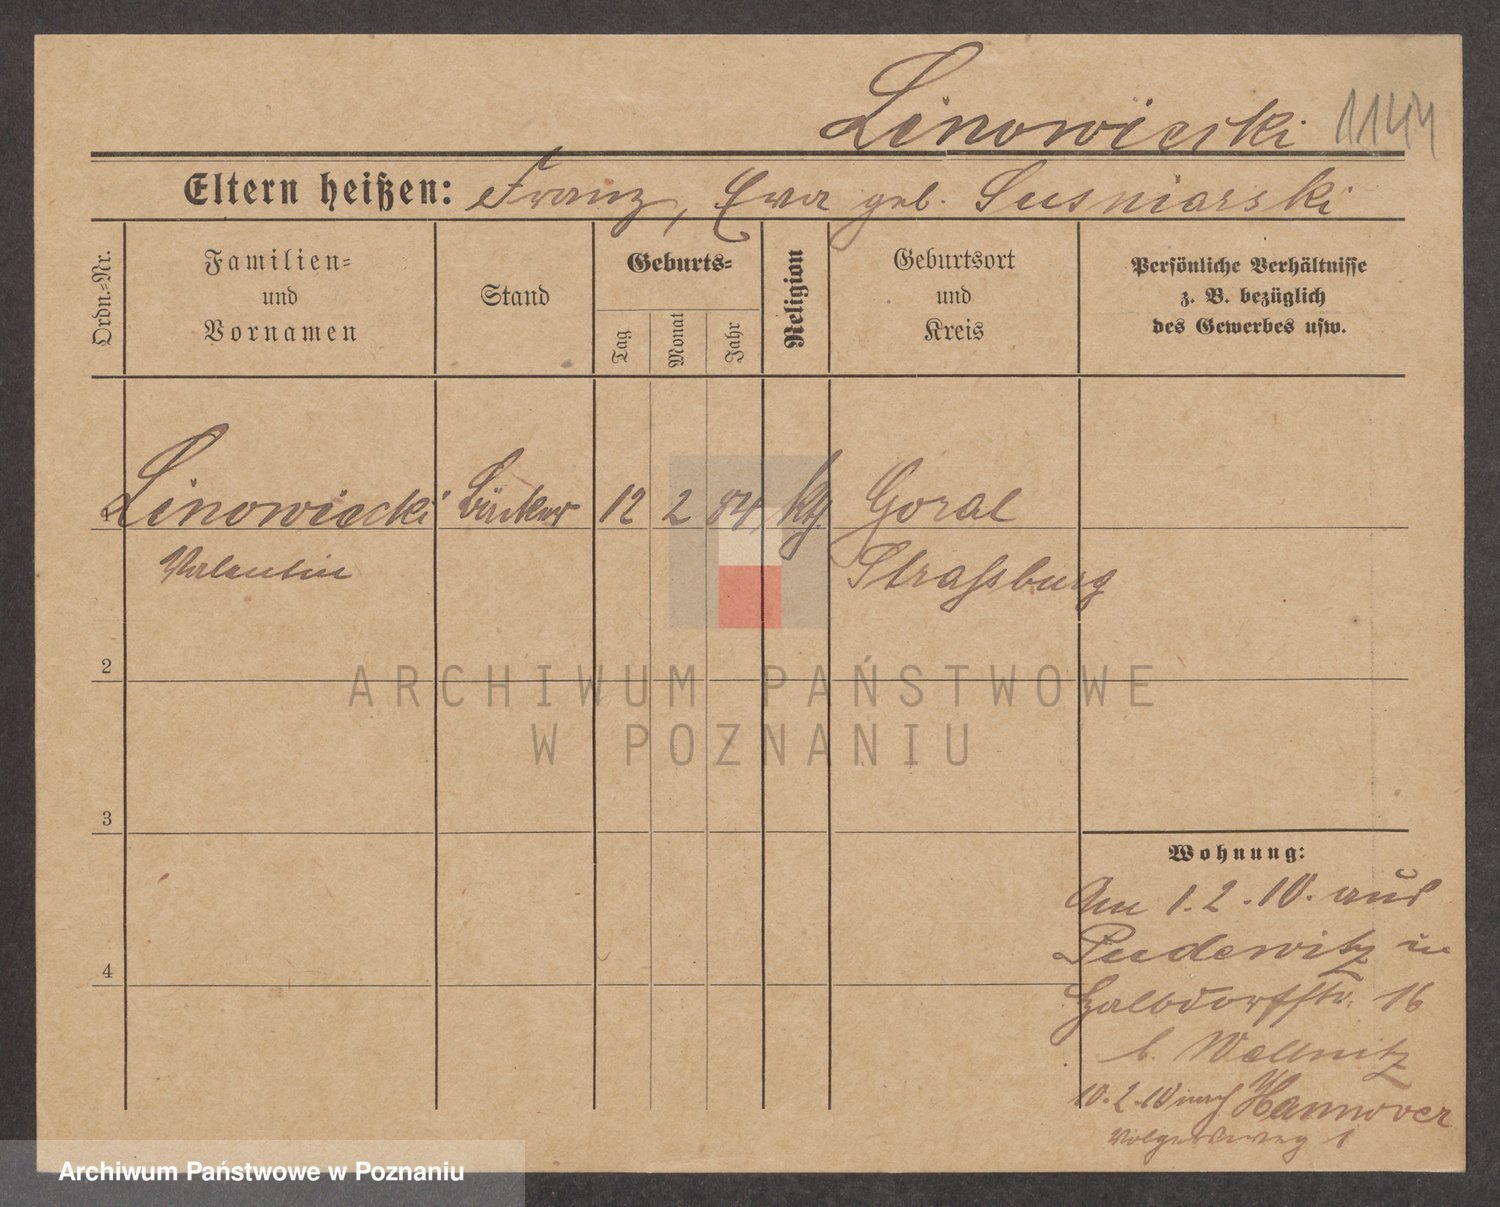 Linowiecki 1144
Eltern heißen: Franz, Ewa geb. Susniarski
Ordn.-Nr.
Familien-
und
Vornamen
Stand
Geburts-
Tag
Monat
Jahr
Religion
Geburtsort
und
Kreis
Persönliche Verhältnisse
z. B. bezüglich
des Gewerbes usw.
1 Linowiecki Bäcker 12 2 84 kth. Goral
Valentin Straßburg
2
3
4
Wohnung:
Am 1.2.10. aus
Pudewitz in
Halbdorfstr. 16
b. Wellnitz
10.2.10 nach Hannover
Volgersweg 1
ARCHIWUM PAŃSTWOWE
W POZNANIU
Archiwum Państwowe w Poznaniu